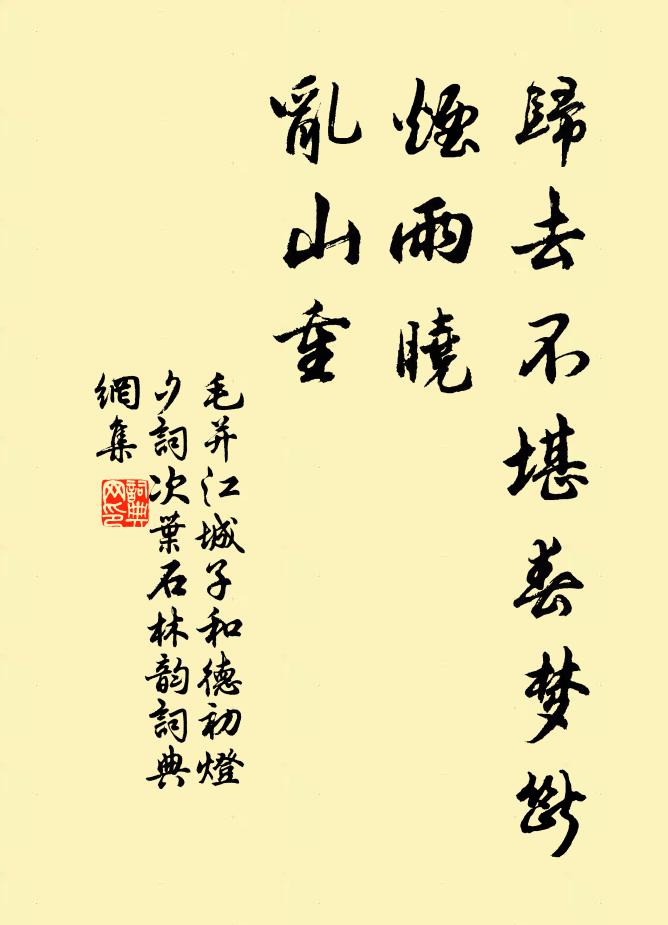 歸去不堪春梦斷
煙雨曉
亂山重
毛并江城子和德初燈
夕詞次葉石林韵詞典
網集
詞典
网印